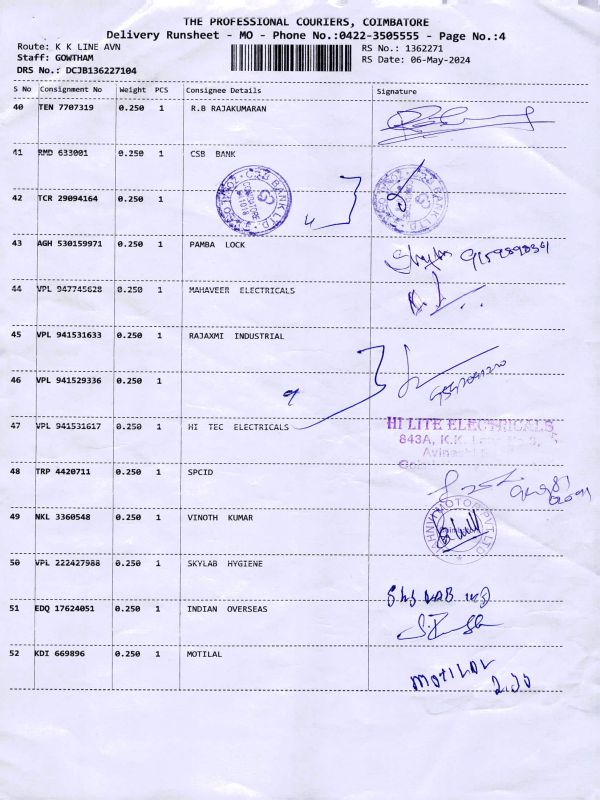 THE PROFESSIONAL COURIERS, COIMBATORE
Delivery Runsheet - MO - Phone No.:0422-3505555 - Page No.:4
Route: K K LINE AVN RS No.: 1362271
Staff: GOWTHAM RS Date: 06-May-2024
DRS No.: DCJB136227104
S No Consignment No Weight PCS Consignee Details Signature
40 TEN 7707319 0.250 1 R.B RAJAKUMARAN
41 RMD 633001 0.250 1 CSB BANK
CSB BANK LTD
42 TCR 29094164 0.250 1
43 AGH 530159971 0.250 1 PAMBA LOCK
44 VPL 947745628 0.250 1 MAHAVEER ELECTRICALS
45 VPL 941531633 0.250 1 RAJAXMI INDUSTRIAL
46 VPL 941529336 0.250 1
47 VPL 941531617 0.250 1 HI TEC ELECTRICALS
HI LITE ELECTRICALS
843A, K.K.
48 TRP 4420711 0.250 1 SPCID
49 NKL 3360548 0.250 1 VINOTH KUMAR
MOTOR PVT LTD
50 VPL 222427988 0.250 1 SKYLAB HYGIENE
51 EDQ 17624051 0.250 1 INDIAN OVERSEAS
52 KDI 669896 0.250 1 MOTILAL
MOTILAL
2.30